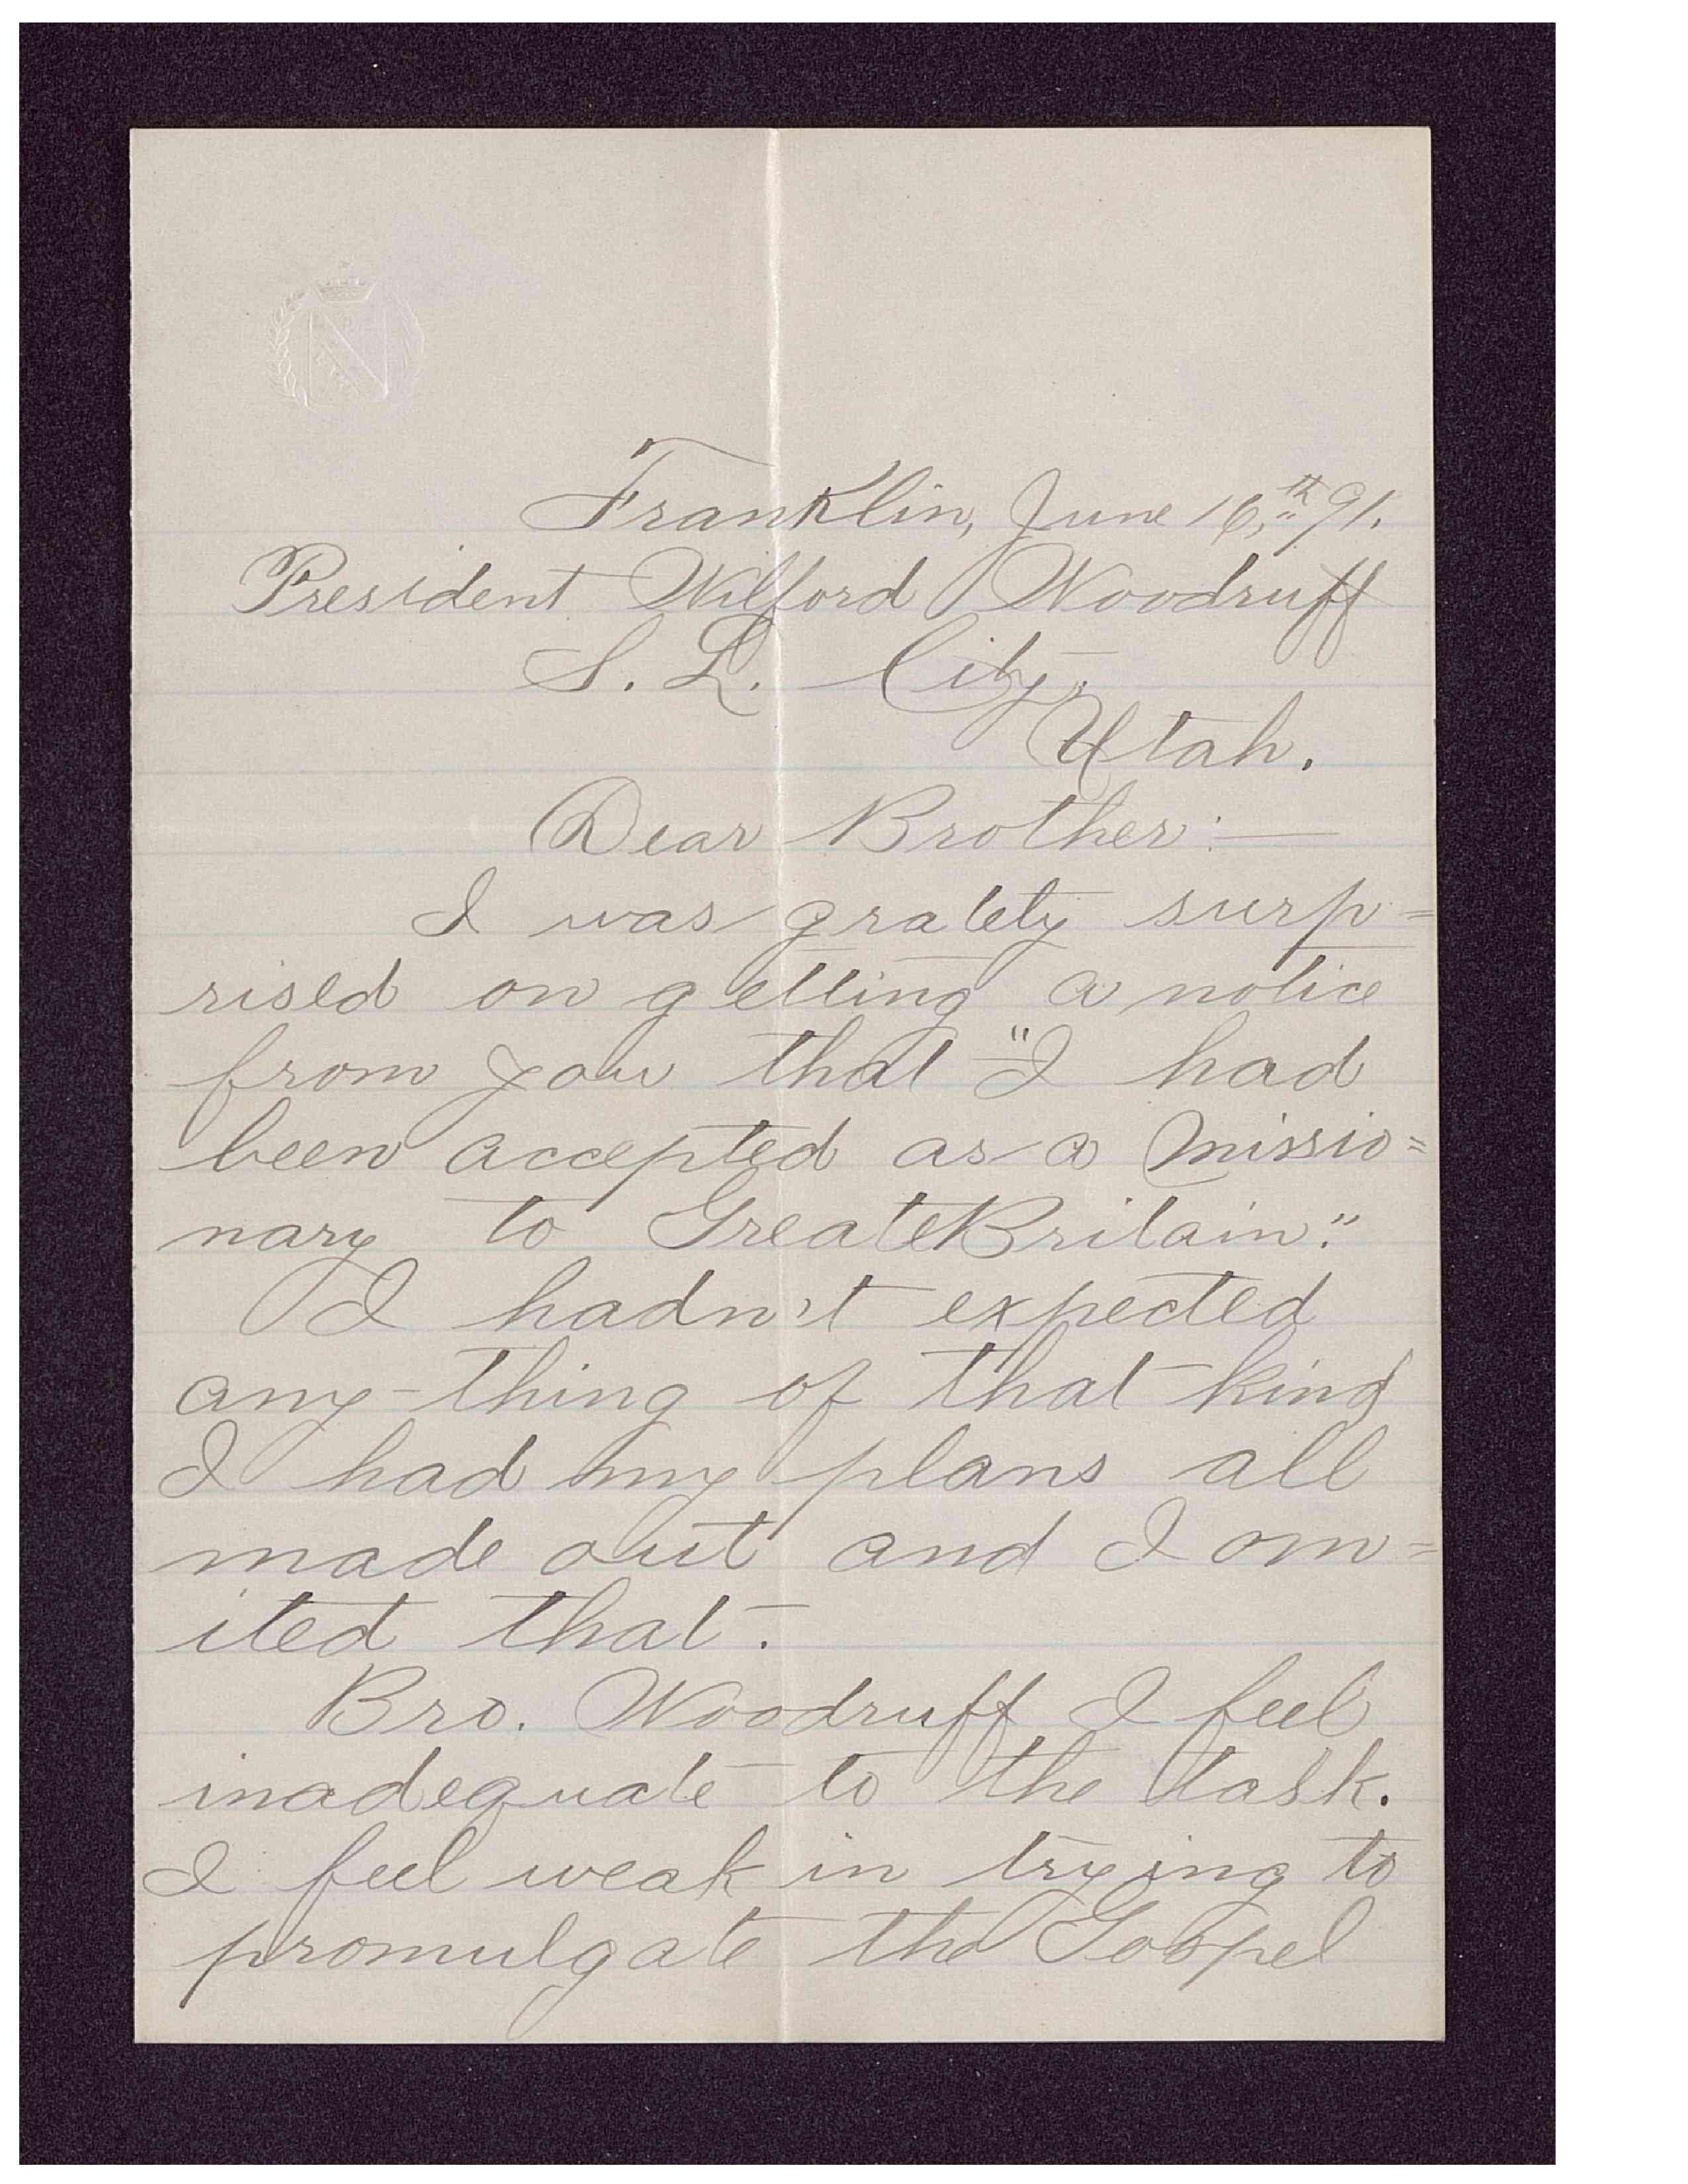 Franklin, June 16,th 91.
President Wilford Woodruff
S. L. City,
Utah.
Dear Brother:—
I was grately surp=
rised on getting a notice
from you that "I had
been accepted as a missio=
nary to Greate Britain."
I hadn't expected
any-thing of that kind
I had my plans all
made out and I om=
ited that.
Bro. Woodruff I feel
inadequate to the task.
I feel weak in trying to
promulgate the Gospel